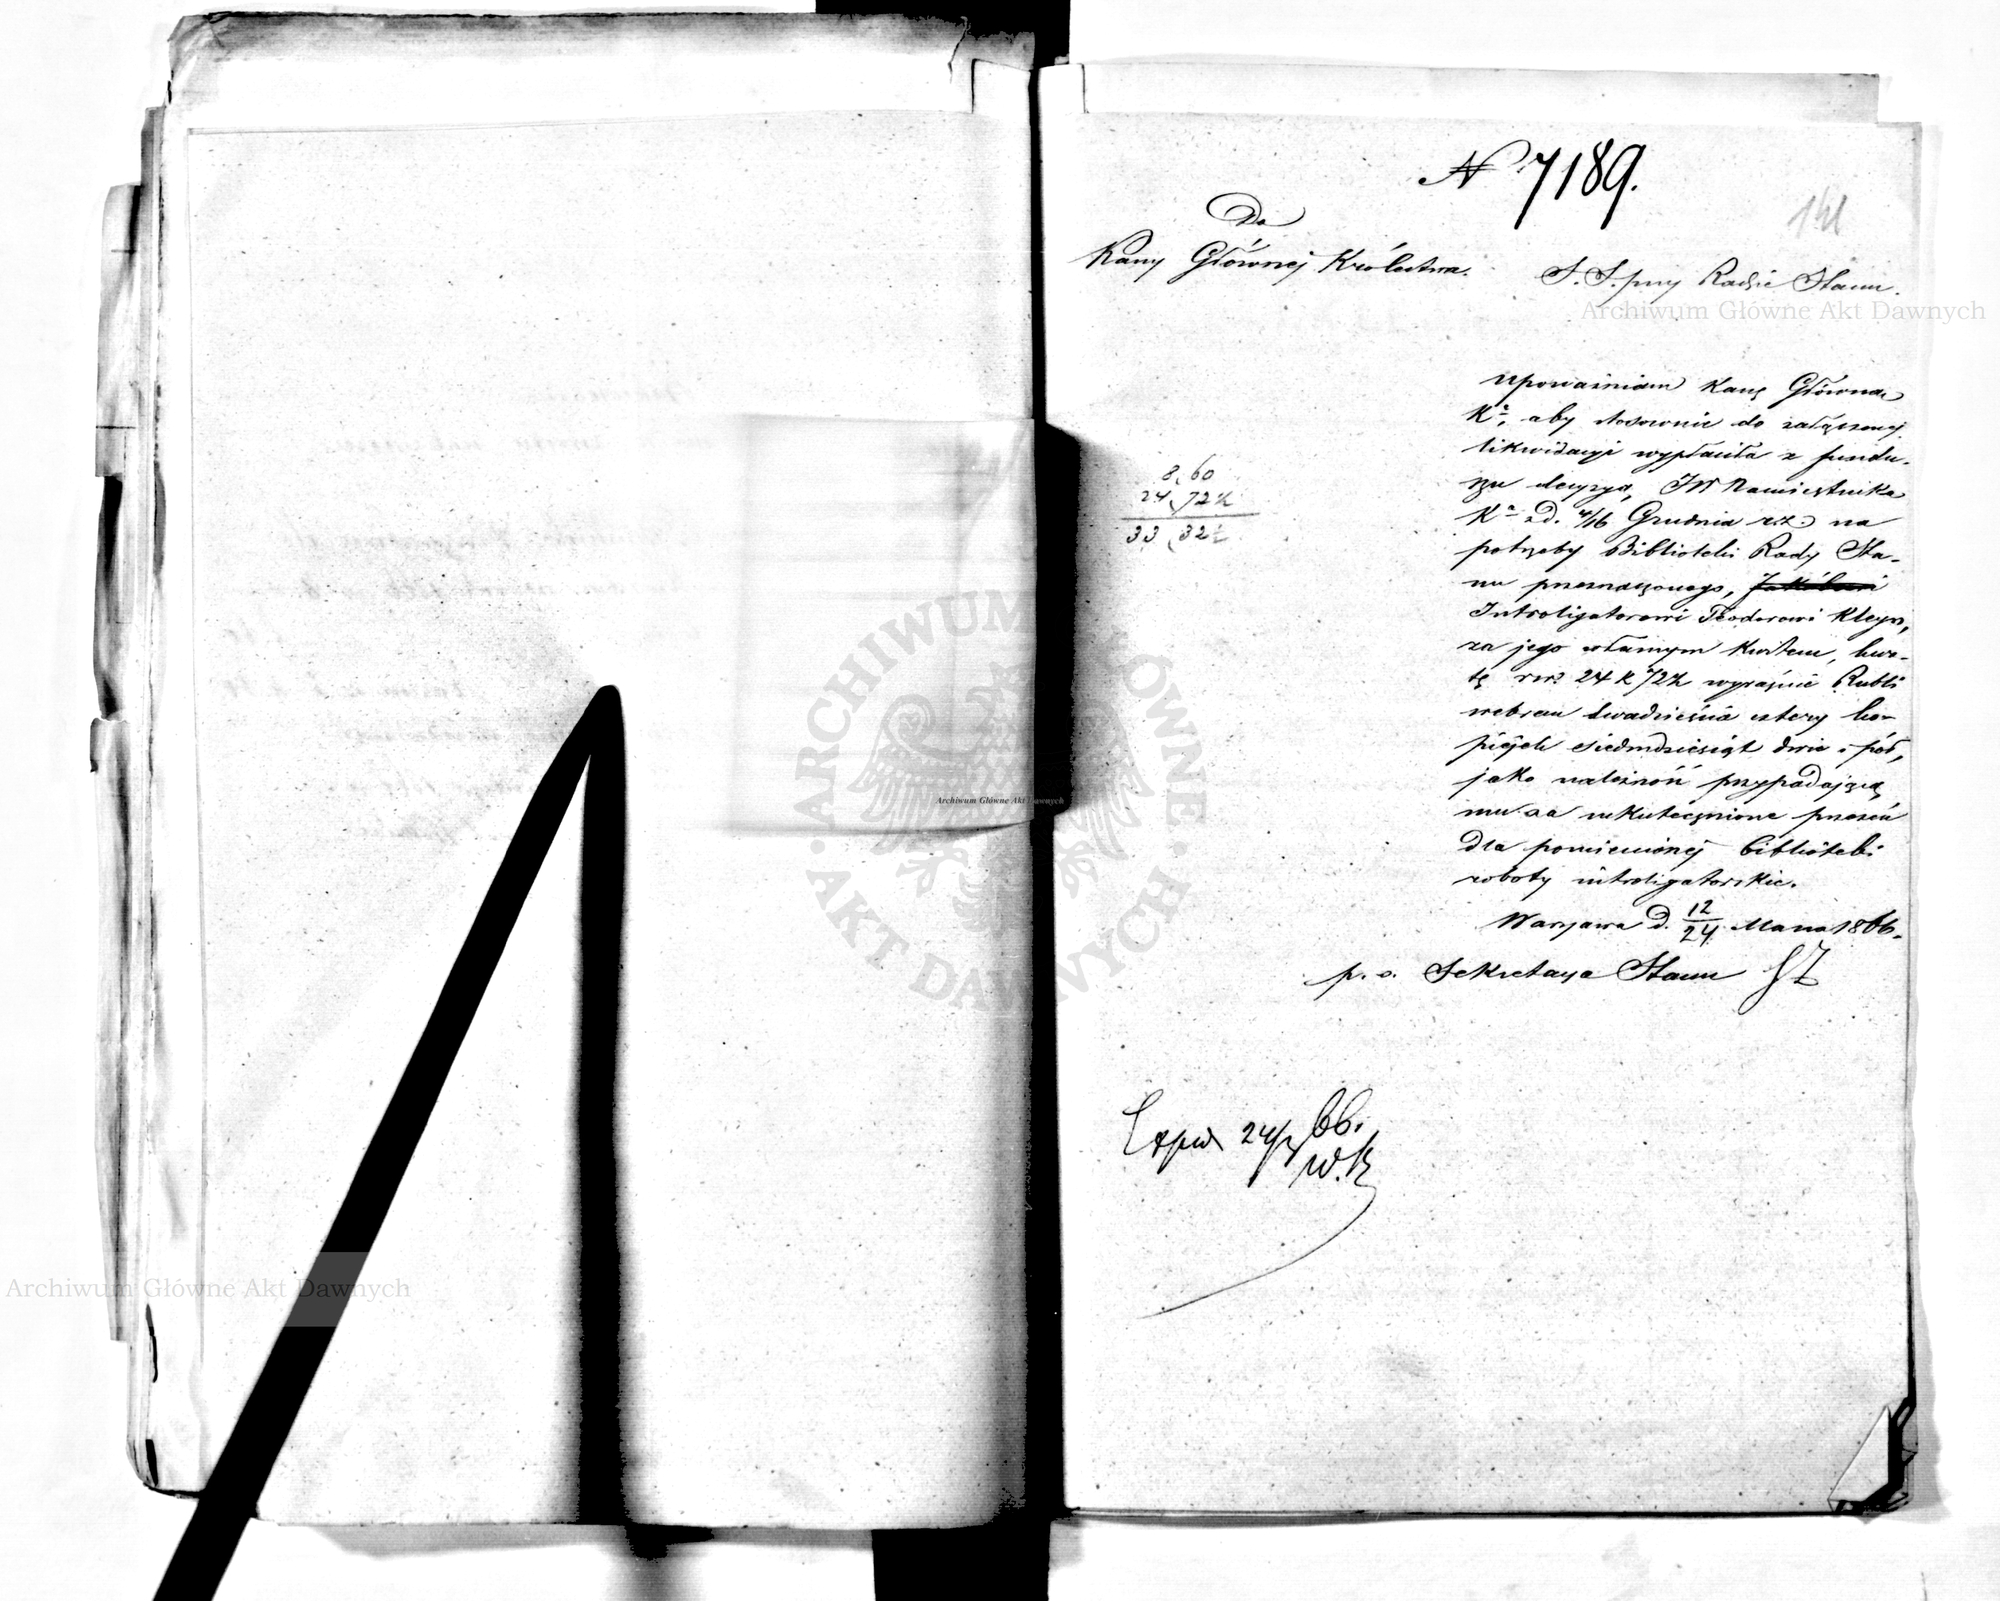 N 7189.
141
Do
Kassy Głównej Królestwa.
S. S. przy Radzie Stanu.
Archiwum Główne Akt Dawnych
Upoważniam Kassę Główną
Kª, aby stosownie do załączonej
likwidacyi wypłaciła z fundu-
szu decyzyą JW Namiestnika
Kª z d. 4/16 Grudnia r.z. na
potrzeby Biblioteki Rady Sta-
nu przeznaczonego,
Introligatorowi Teodorowi Kleyn,
za jego własnym kwitem, kwo-
tę rsr. 24 k 72½ wyraźnie Rubli
srebrem dwadzieścia cztery ko-
piejek siedmdziesiąt dwie i pół,
jako należność przypadającą
mu za uskutecznione przezeń
dla pomienionej biblioteki
roboty introligatorskie.
Warszawa d. 12/24 Marca 1866.
p. o. Sekretarza Stanu SZ
8,60
24,72½
33,32½
24/3 66.
W.K
ARCHIWUM GŁÓWNE AKT DAWNYCH
Archiwum Główne Akt Dawnych
Archiwum Główne Akt Dawnych